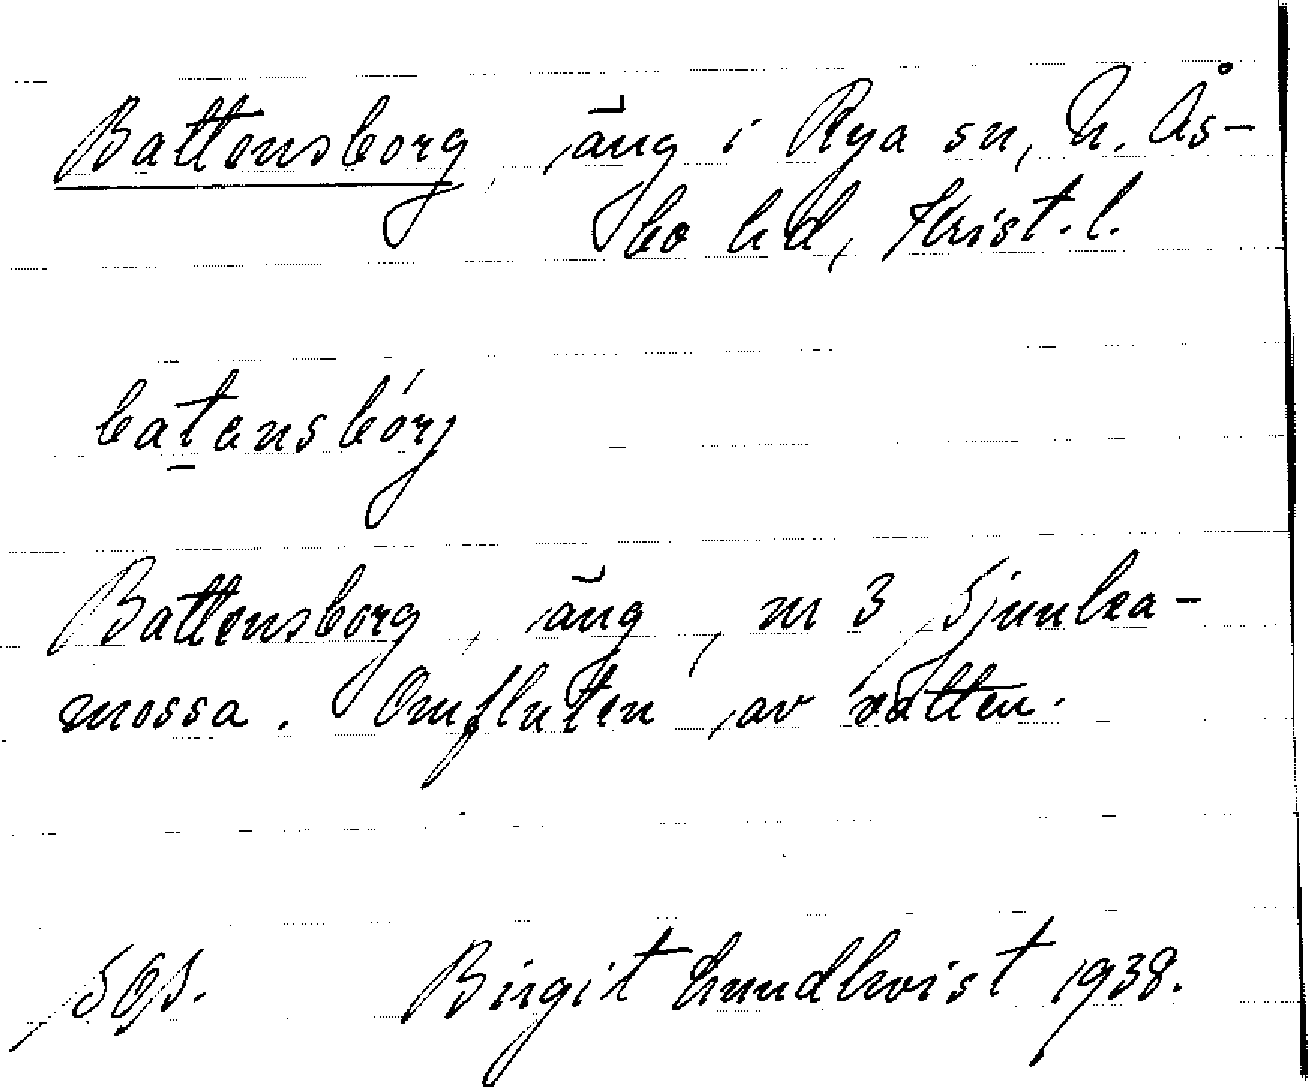 Battensborg, äng i Rya sn, N. Ås-
bo hd, Krist. l.
bat̠ansbórg
Battensborg, äng, nr 3 Sjunka-
mossa. Omfluten av vatten.
Birgit Lundkvist 1938.